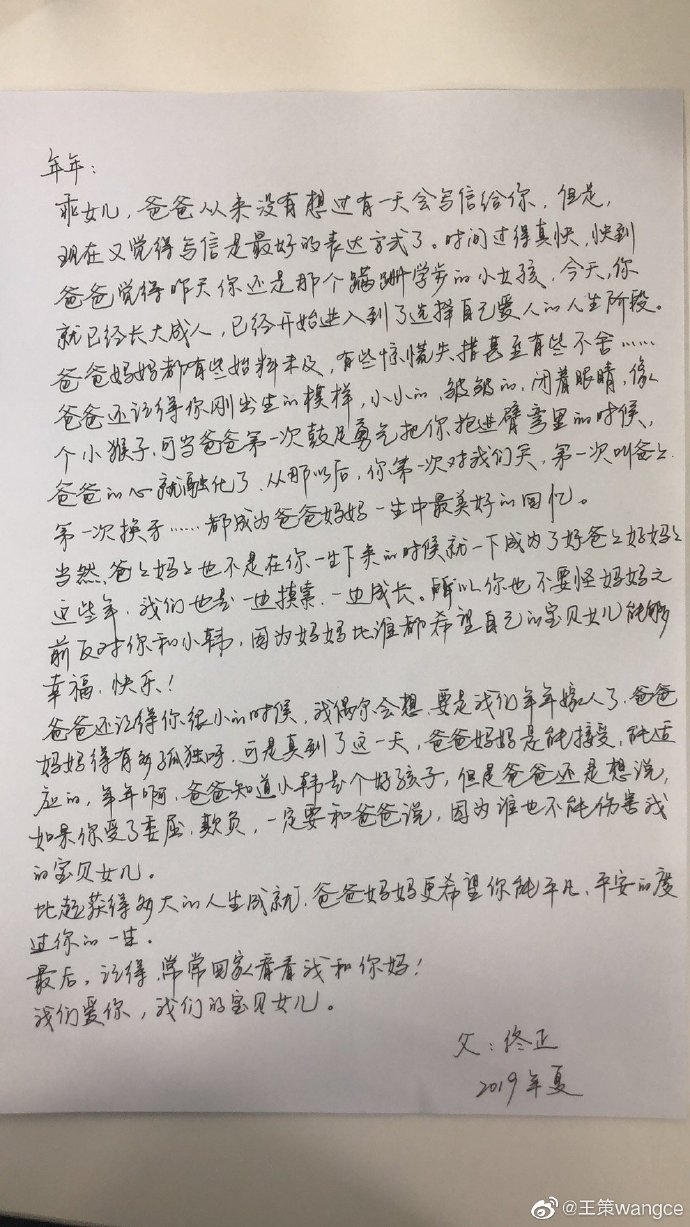 年年：
乖女儿，爸爸从来没有想过有一天会写信给你，但是，
现在又觉得写信是最好的表达方式了。时间过得真快，快到
爸爸觉得昨天你还是那个蹒跚学步的小女孩，今天，你
就已经长大成人，已经开始进入到了选择自己爱人的人生阶段。
爸爸妈妈都有些始料未及，有些惊慌失措甚至有些不舍……
爸爸还记得你刚出生的模样，小小的，皱皱的，闭着眼睛，像
个小猴子，可当爸爸第一次鼓足勇气把你抱进臂弯里的时候，
爸爸的心就融化了，从那以后，你第一次对我们笑，第一次叫爸爸
第一次换牙……都成为爸爸妈妈一生中最美好的回忆。
当然，爸爸妈妈也不是在你一生下来的时候就一下成为了好爸爸好妈妈
这些年，我们也是一边摸索，一边成长。所以你也不要怪妈妈之
前反对你和小韩，因为妈妈比谁都希望自己的宝贝女儿能够
幸福、快乐！
爸爸还记得你很小的时候，我偶尔会想，要是我们年年嫁人了，爸爸
妈妈得有多孤独呀，可是真到了这一天，爸爸妈妈是能接受，能适
应的，年年啊，爸爸知道小韩是个好孩子，但是爸爸还是想说，
如果你受了委屈、欺负，一定要和爸爸说，因为谁也不能伤害我
的宝贝女儿。
比起获得多大的人生成就，爸爸妈妈更希望你能平凡、平安的度
过你的一生。
最后，记得，常常回家看看我和你妈！
我们爱你，我们的宝贝女儿。
父：佟正
2019年夏
@王策wangce